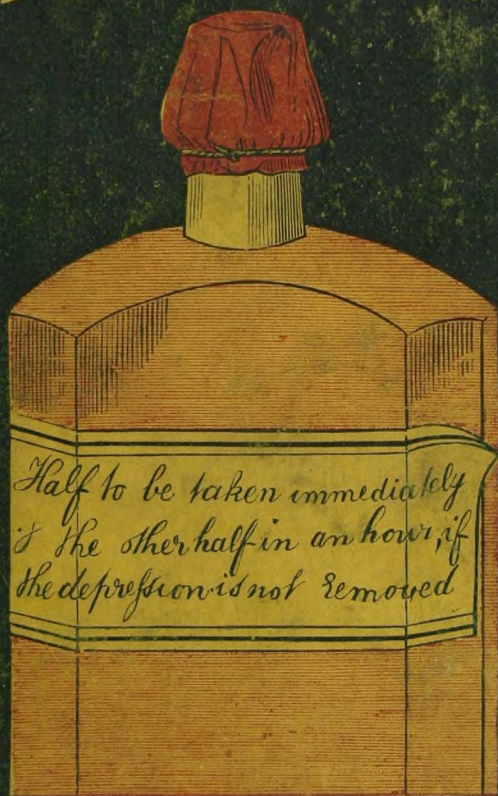 Half to be taken immediately
& the other half in an hour, if
the depreſsion is not removed